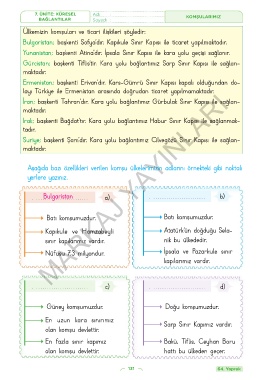 7. ÜNİTE: KÜRESEL
BAĞLANTILAR
KOMŞULARIMIZ
Ülkemizin komşuları ve ticari ilişkileri şöyledir:
Bulgaristan; başkenti Sofya'dır. Kapıkule Sınır Kapısı ile ticaret yapılmaktadır.
Yunanistan; başkenti Atina'dır. İpsala Sınır Kapısı ile kara yolu geçişi sağlanır.
Gürcistan; başkenti Tiflis'tir. Kara yolu bağlantımız Sarp Sınır Kapısı ile sağlan-
maktadır.
Ermenistan; başkenti Erivan'dır. Kara-Gümrü Sınır Kapısı kapalı olduğundan do-
layı Türkiye ile Ermenistan arasında doğrudan ticaret yapılmamaktadır.
İran; başkenti Tahran'dır. Kara yolu bağlantımız Gürbulak Sınır Kapısı ile sağlan-
maktadır.
Irak; başkenti Bağdat'tır. Kara yolu bağlantımız Habur Sınır Kapısı ile sağlanmak-
tadır.
Suriye; başkenti Şam'dır. Kara yolu bağlantımız Cilvegözü Sınır Kapısı ile sağlan-
maktadır.
Aşağıda bazı özellikleri verilen komşu ülkelerimizin adlarını örnekteki gibi noktalı
yerlere yazınız.
Bulgaristan a)
Batı komşumuzdur.
Kapıkule ve Hamzabeyli
sınır kapılarımız vardır.
Nüfusu 7.3 milyondur.
b)
Batı komşumuzdur.
Atatürk'ün doğduğu Sela-
nik bu ülkededir.
İpsala ve Pazarkule sınır
kapılarımız vardır.
c)
Güney komşumuzdur.
En uzun kara sınırımız
olan komşu devlettir.
En fazla sınır kapımız
olan komşu devlettir.
d)
Doğu komşumuzdur.
Sarp Sınır Kapımız vardır.
Bakü, Tiflis, Ceyhan Boru
hattı bu ülkeden geçer.
MARKAJ YAYINLARI